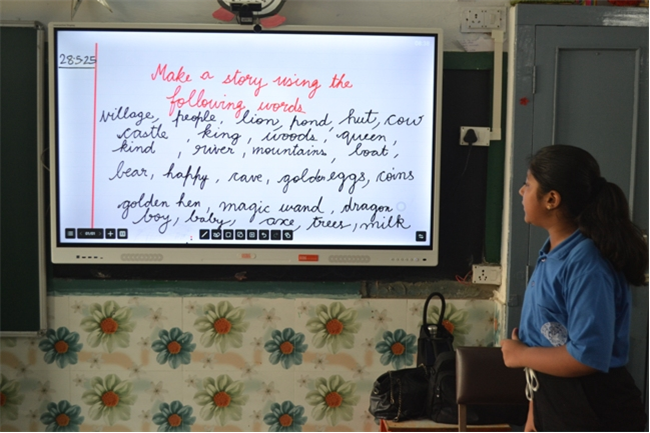 28.5.25
Make a story using the
following words
village, people, lion, pond, hut, cow
castle, king, woods, queen,
kind, river, mountains, boat,
bear, happy, cave, golden eggs, coins
golden hen, magic wand, dragon
boy, baby, axe, trees, milk